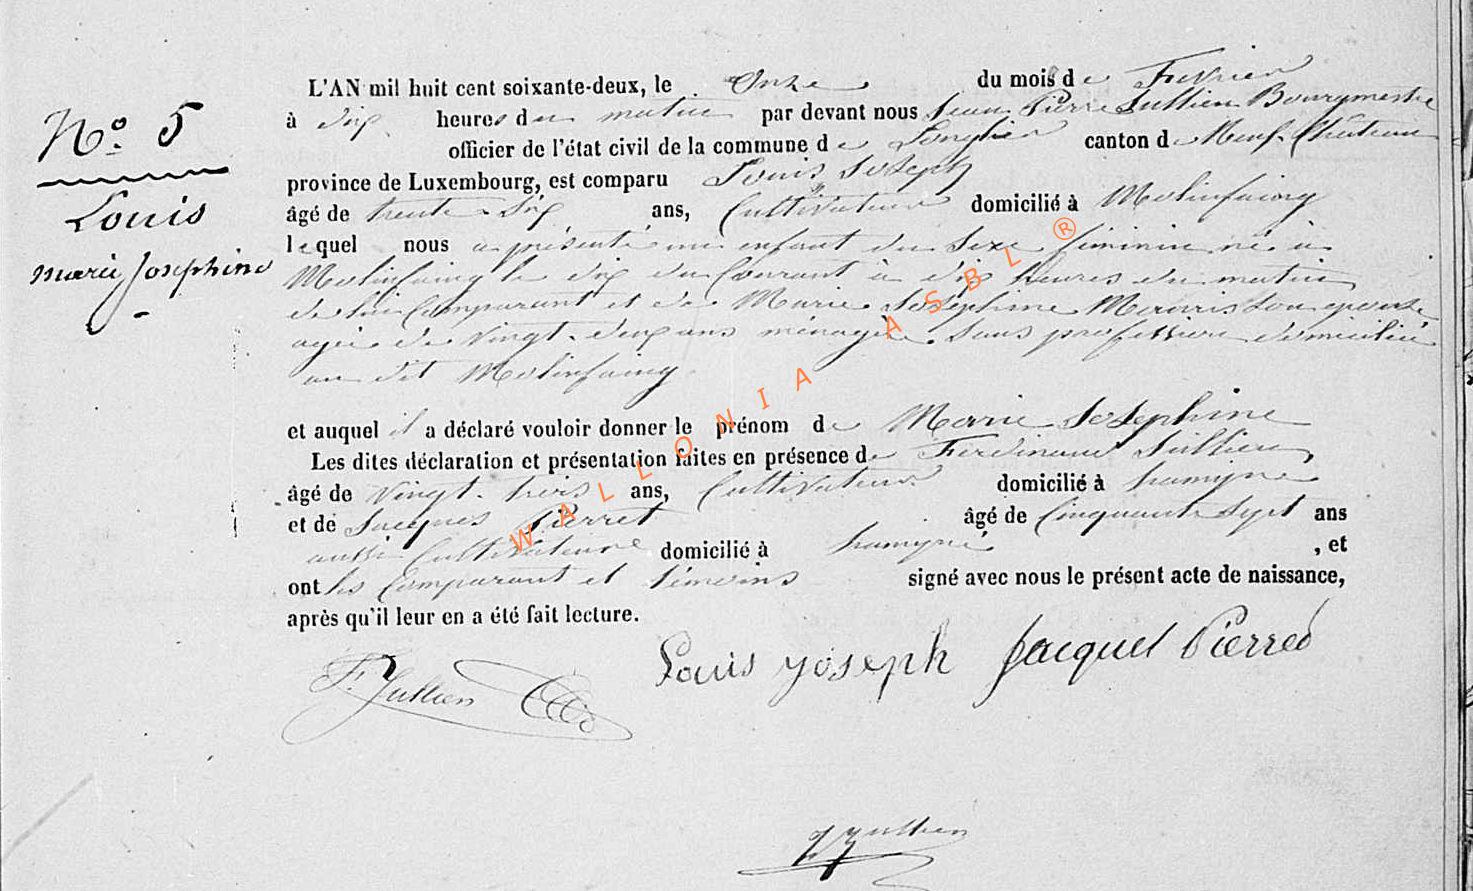 N° 5
Louis
marie Josephine
L'AN mil huit cent soixante-deux, le onze du mois de Fevrier
à dix heures du matin par devant nous Jean Pierre Jullien Bourgmestre
officier de l'état civil de la commune de Longlier canton de Neuf-Château
province de Luxembourg, est comparu Louis Joseph
âgé de trente-six ans, Cultivateur domicilié à Molinfaing
lequel nous a présenté un enfant du sexe féminin né à
Molinfaing le dix du Courant à dix heures du matin
de lui Comparant et de Marie Josephine son epouse
agée de vingt-deux ans ménagère sans profession domiciliée
au dit Molinfaing
et auquel il a déclaré vouloir donner le prénom de Marie Josephine
Les dites déclaration et présentation faites en présence de Ferdinand Jullien,
âgé de vingt-trois ans, Cultivateur domicilié à
et de Jacques Pierret âgé de Cinquante sept ans
aussi Cultivateur domicilié à , et
ont les Comparant et témoins signé avec nous le présent acte de naissance,
après qu'il leur en a été fait lecture.
F. Jullien Louis yoseph Jacquet Pierred
Jullien
WALLONIA ASBL ®